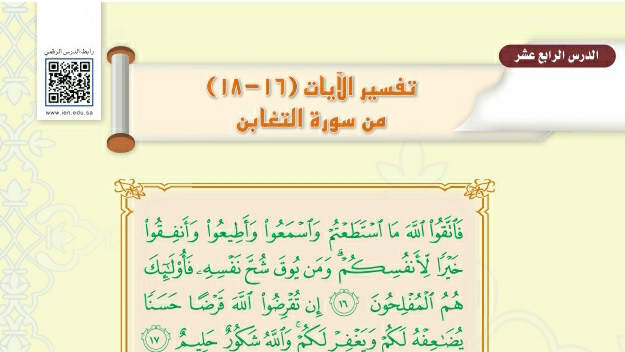 رابط الدرس الرقمي
www.ien.edu.sa
الدرس الرابع عشر
تفسير الآيات (١٦-١٨)
من سورة التغابن
فَٱتَّقُوا۟ ٱللَّهَ مَا ٱسْتَطَعْتُمْ وَٱسْمَعُوا۟ وَأَطِيعُوا۟ وَأَنفِقُوا۟
خَيْرًا لِّأَنفُسِكُمْ ۗ وَمَن يُوقَ شُحَّ نَفْسِهِۦ فَأُو۟لَٰٓئِكَ
هُمُ ٱلْمُفْلِحُونَ ١٦ إِن تُقْرِضُوا۟ ٱللَّهَ قَرْضًا حَسَنًا
يُضَٰعِفْهُ لَكُمْ وَيَغْفِرْ لَكُمْ ۚ وَٱللَّهُ شَكُورٌ حَلِيمٌ ١٧